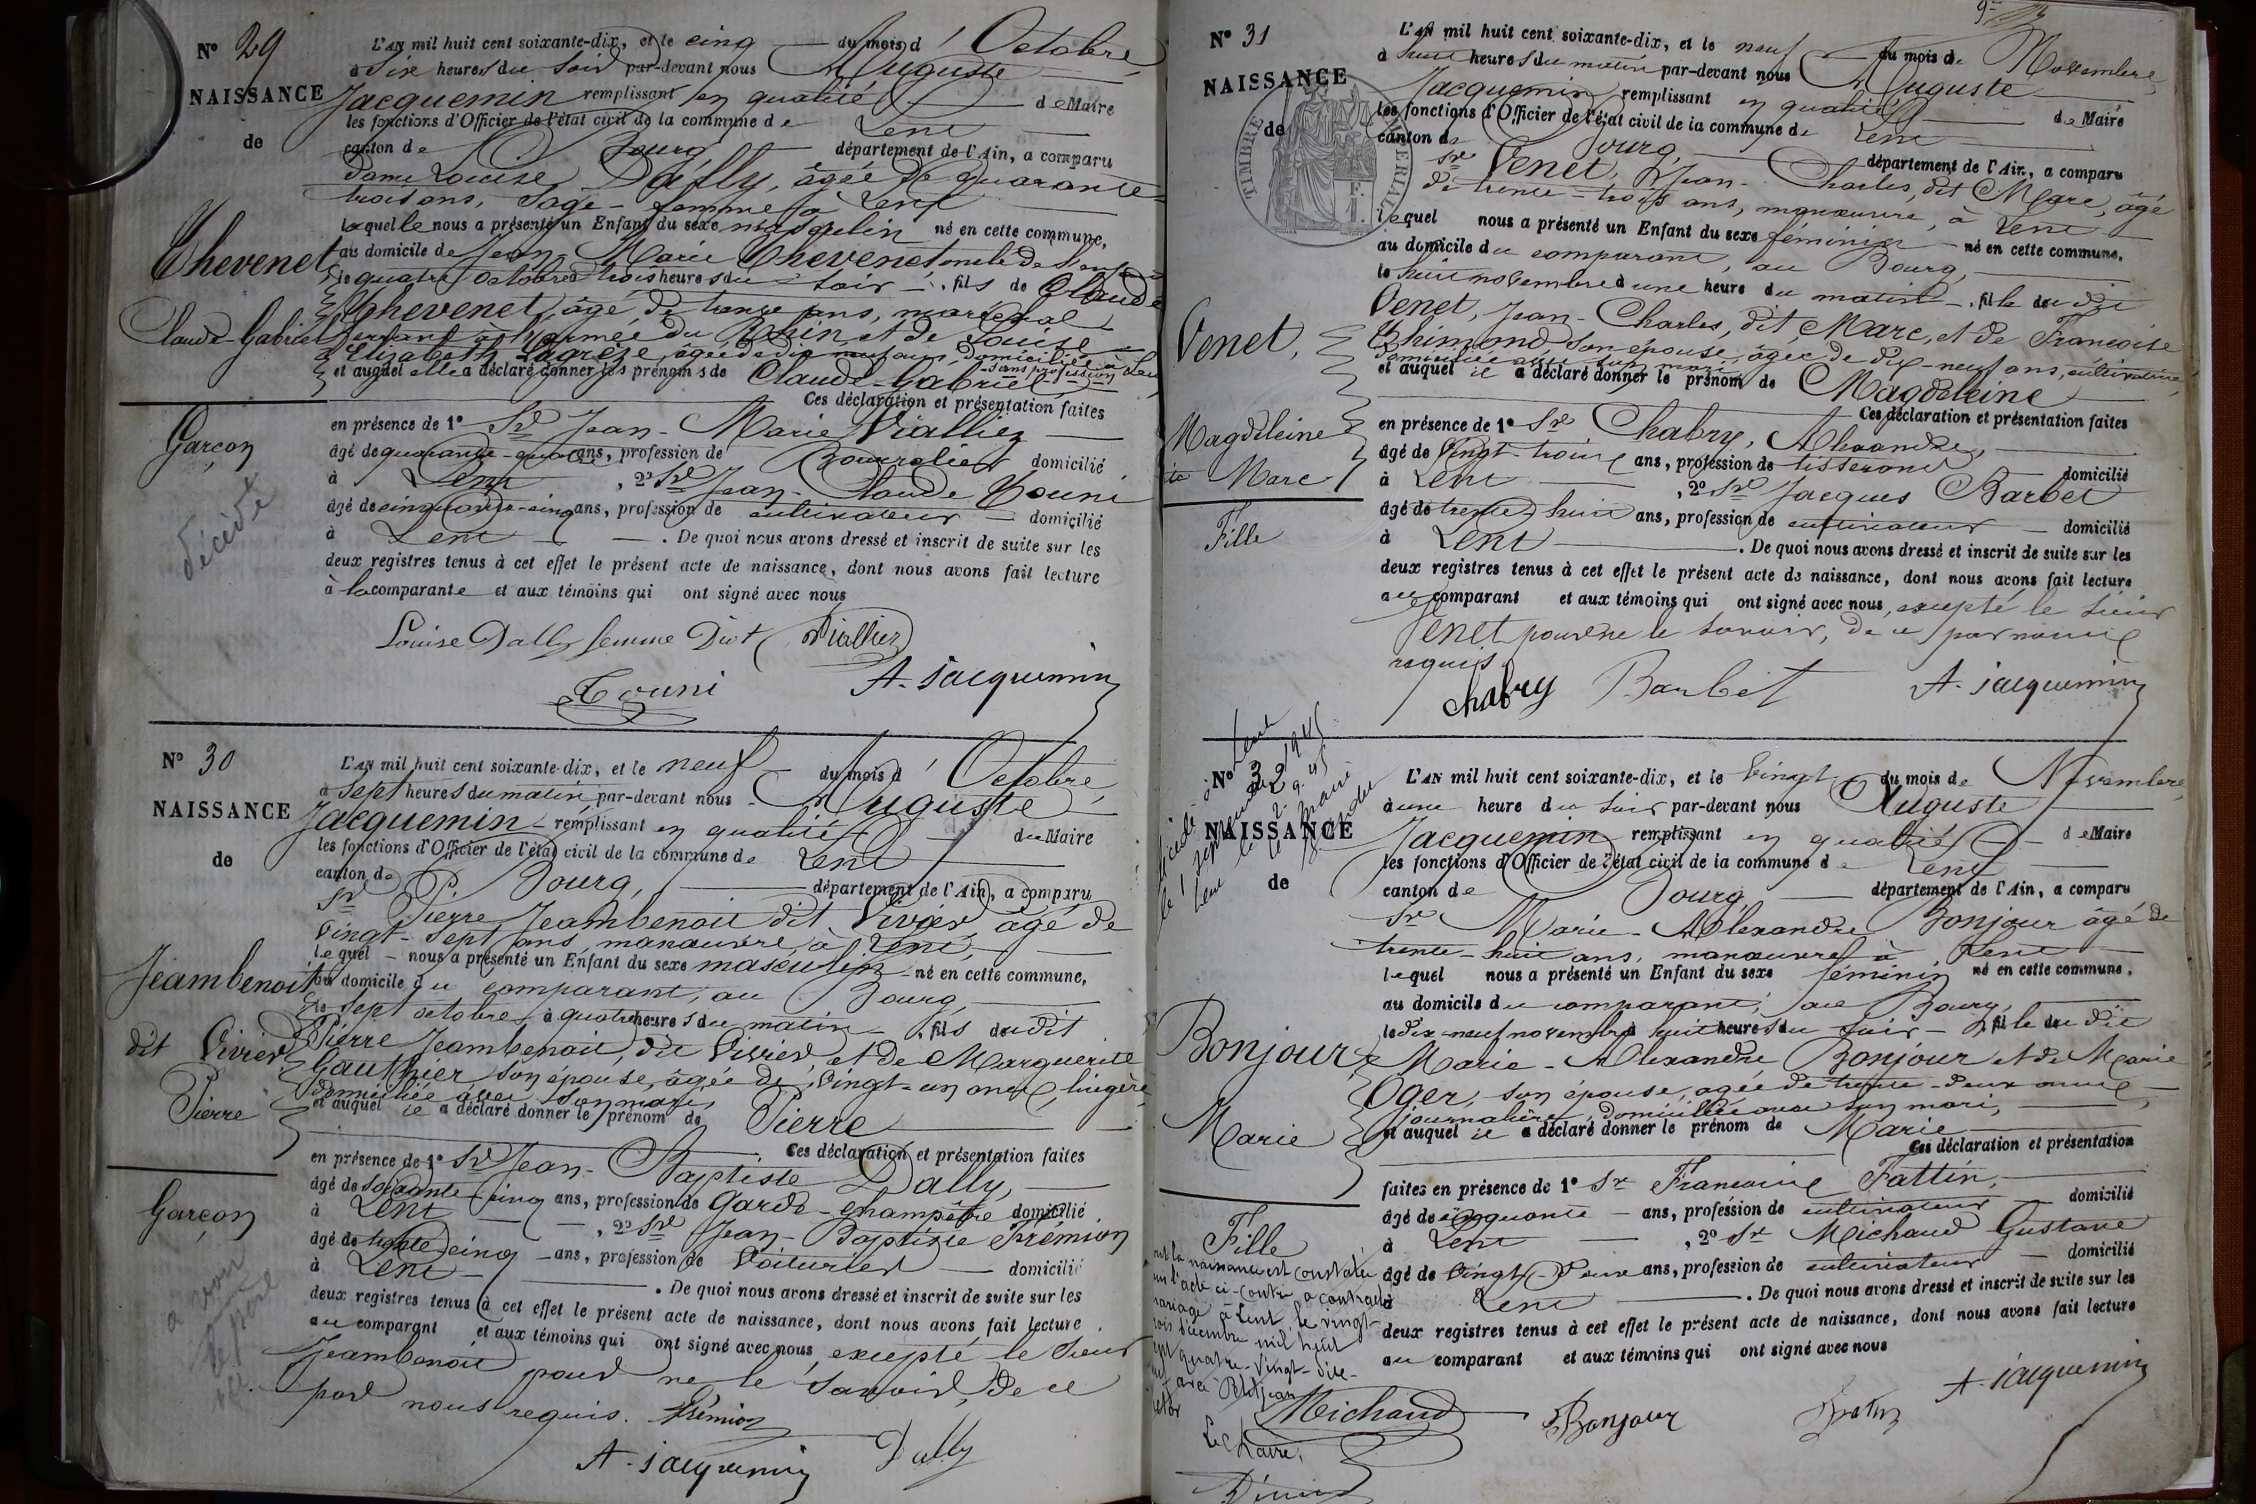 N° 29
NAISSANCE
de
Chevenet
Claude-Gabriel
Garçon
décédé
L'AN mil huit cent soixante-dix, et le cinq du mois d'Octobre,
à six heures du soir par-devant nous Auguste
Jacquemin remplissant en qualité de Maire
les fonctions d'Officier de l'état civil de la commune de Lent
canton de Bourg département de l'Ain, a comparu
Dame Louise Dally, âgée de quarante-
trois ans, sage-femme à Lent
laquelle nous a présenté un Enfant du sexe masculin né en cette commune,
au domicile de Jean Marie Chevenet oncle de l'enfant
le quatre octobre à trois heures du soir, fils de Claude
Chevenet, âgé de trente ans, maréchal
servant à l'armée du Rhin et de Louise
Elizabeth Lagrèze, âgée de dix neuf ans, domiciliée à Lent
sans profession
et auquel elle a déclaré donner les prénoms de Claude-Gabriel
Ces déclaration et présentation faites
en présence de 1° Sr Jean-Marie Viallier
âgé de quarante-quatre ans, profession de Bourrelier domicilié
à Lent, 2° Sr Jean-Claude Couni
âgé de cinquante-cinq ans, profession de cultivateur domicilié
à Lent. De quoi nous avons dressé et inscrit de suite sur les
deux registres tenus à cet effet le présent acte de naissance, dont nous avons fait lecture
à la comparante et aux témoins qui ont signé avec nous
Louise Dally femme Viallier
Couni A. Jacquemin
N° 30
NAISSANCE
de
Jeambenoit
dit Vivier
Pierre
Garçon
L'AN mil huit cent soixante-dix, et le neuf du mois d'Octobre,
à sept heures du matin par-devant nous Auguste
Jacquemin remplissant en qualité du Maire
les fonctions d'Officier de l'état civil de la commune de Lent
canton de Bourg, département de l'Ain, a comparu
Sr Pierre Jeambenoit dit Vivier, âgé de
vingt-sept ans, manœuvre, à Lent,
lequel nous a présenté un Enfant du sexe masculin né en cette commune,
au domicile du comparant, au Bourg,
le sept octobre à quatre heures du matin, fils du dit
Pierre Jeambenoit, dit Vivier et de Marguerite
Gauthier, son épouse, âgée de vingt-un ans, lingère,
domiciliée avec son mari,
et auquel il a déclaré donner le prénom de Pierre
Ces déclaration et présentation faites
en présence de 1° Sr Jean-Baptiste Dally,
âgé de soixante-cinq ans, profession de Garde-champêtre domicilié
à Lent, 2° Sr Jean-Baptiste Frémion
âgé de trente cinq ans, profession de Voiturier domicilié
à Lent. De quoi nous avons dressé et inscrit de suite sur les
deux registres tenus à cet effet le présent acte de naissance, dont nous avons fait lecture
au comparant et aux témoins qui ont signé avec nous, excepté le Sieur
Jeambenoit pour ne le savoir, de ce
par nous requis. Frémion
A. Jacquemin Dally
N° 31
NAISSANCE
de
TIMBRE IMPERIAL
Venet,
Magdeleine
Marc
Fille
L'AN mil huit cent soixante-dix, et le neuf du mois de Novembre,
à huit heures du matin par-devant nous Auguste
Jacquemin remplissant en qualité de Maire
les fonctions d'Officier de l'état civil de la commune de Lent
canton de Bourg département de l'Ain, a comparu
Sr Venet, Jean-Charles, dit Marc, âgé
de trente-trois ans, manœuvre, à Lent
lequel nous a présenté un Enfant du sexe féminin né en cette commune,
au domicile du comparant, au Bourg,
le huit novembre à une heure du matin, fille du dit
Venet, Jean-Charles, dit Marc, et de Françoise
Thimond son épouse, âgée de dix-neuf ans, cultivatrice,
domiciliée avec son mari
et auquel il a déclaré donner le prénom de Magdeleine
Ces déclaration et présentation faites
en présence de 1° Sr Chabry, Alexandre,
âgé de vingt-trois ans, profession de tisserand domicilié
à Lent, 2° Sr Jacques Barbet
âgé de trente huit ans, profession de cultivateur domicilié
à Lent. De quoi nous avons dressé et inscrit de suite sur les
deux registres tenus à cet effet le présent acte de naissance, dont nous avons fait lecture
au comparant et aux témoins qui ont signé avec nous, excepté le Sieur
Venet pour ne le savoir, de ce par nous
requis.
Chabry Barbet A. Jacquemin
N° 32
NAISSANCE
de
Bonjour
Marie
Fille
L'AN mil huit cent soixante-dix, et le vingt du mois de Novembre,
à une heure du soir par-devant nous Auguste
Jacquemin remplissant en qualité de Maire
les fonctions d'Officier de l'état civil de la commune de Lent
canton de Bourg département de l'Ain, a comparu
Sr Marie-Alexandre Bonjour âgé de
trente-huit ans, manœuvre à Lent
lequel nous a présenté un Enfant du sexe féminin né en cette commune,
au domicile du comparant, au Bourg,
le dix-neuf novembre à huit heures du soir, fille du dit
Marie-Alexandre Bonjour et de Marie
Oger, son épouse, âgée de trente-deux ans,
journalière, domiciliée avec son mari,
et auquel il a déclaré donner le prénom de Marie
Ces déclaration et présentation
faites en présence de 1° Sr François Fattin,
âgé de cinquante ans, profession de cultivateur domicilié
à Lent, 2° Sr Michaud Gustave
âgé de vingt-deux ans, profession de cultivateur domicilié
à Lent. De quoi nous avons dressé et inscrit de suite sur les
deux registres tenus à cet effet le présent acte de naissance, dont nous avons fait lecture
au comparant et aux témoins qui ont signé avec nous
A. Jacquemin
Michaud Bonjour Fattin
la naissance est constatée
l'acte ci-contre a contracté
mariage à Lent, le vingt-
décembre mil huit
cent quatre-vingt-dix-
avec Petitjean
Le Maire,